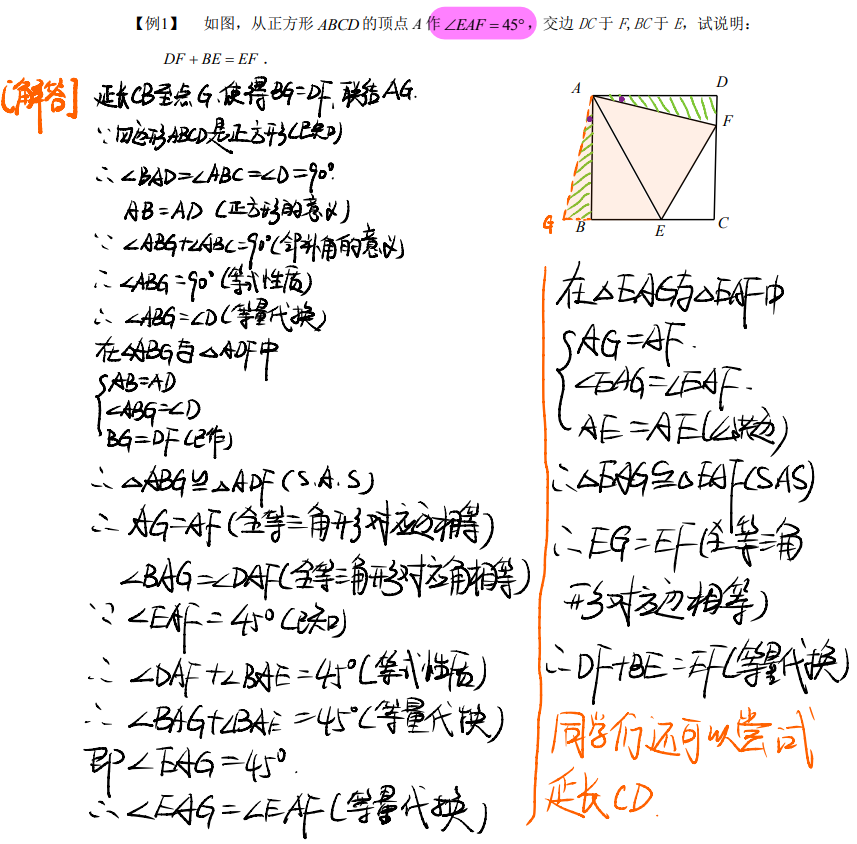 【例1】 如图，从正方形 ABCD 的顶点 A 作 ∠EAF = 45°，交边 DC 于 F, BC 于 E，试说明：
DF + BE = EF .
[解答] 延长CB至点G,使得BG=DF,联结AG.
∵四边形ABCD是正方形(已知)
∴ ∠BAD=∠ABC=∠D=90°
AB=AD (正方形的意义)
∵ ∠ABG+∠ABC=90°(邻补角的意义)
∴ ∠ABG=90°(等式性质)
∴ ∠ABG=∠D(等量代换)
在△ABG与△ADF中
AB=AD
∠ABG=∠D
BG=DF(已作)
∴ △ABG≌△ADF(S.A.S)
∴ AG=AF(全等三角形对应边相等)
∠BAG=∠DAF(全等三角形对应角相等)
∵ ∠EAF=45°(已知)
∴ ∠DAF+∠BAE=45°(等式性质)
∴ ∠BAG+∠BAE=45°(等量代换)
即∠EAG=45°.
∴ ∠EAG=∠EAF(等量代换)
A
D
F
G
B
E
C
在△EAG与△EAF中
AG=AF.
∠EAG=∠EAF.
AE=AE(公共边)
∴△EAG≌△EAF(SAS)
∴EG=EF(全等三角
形对应边相等)
∴DF+BE=EF(等量代换)
同学们还可以尝试
延长CD.